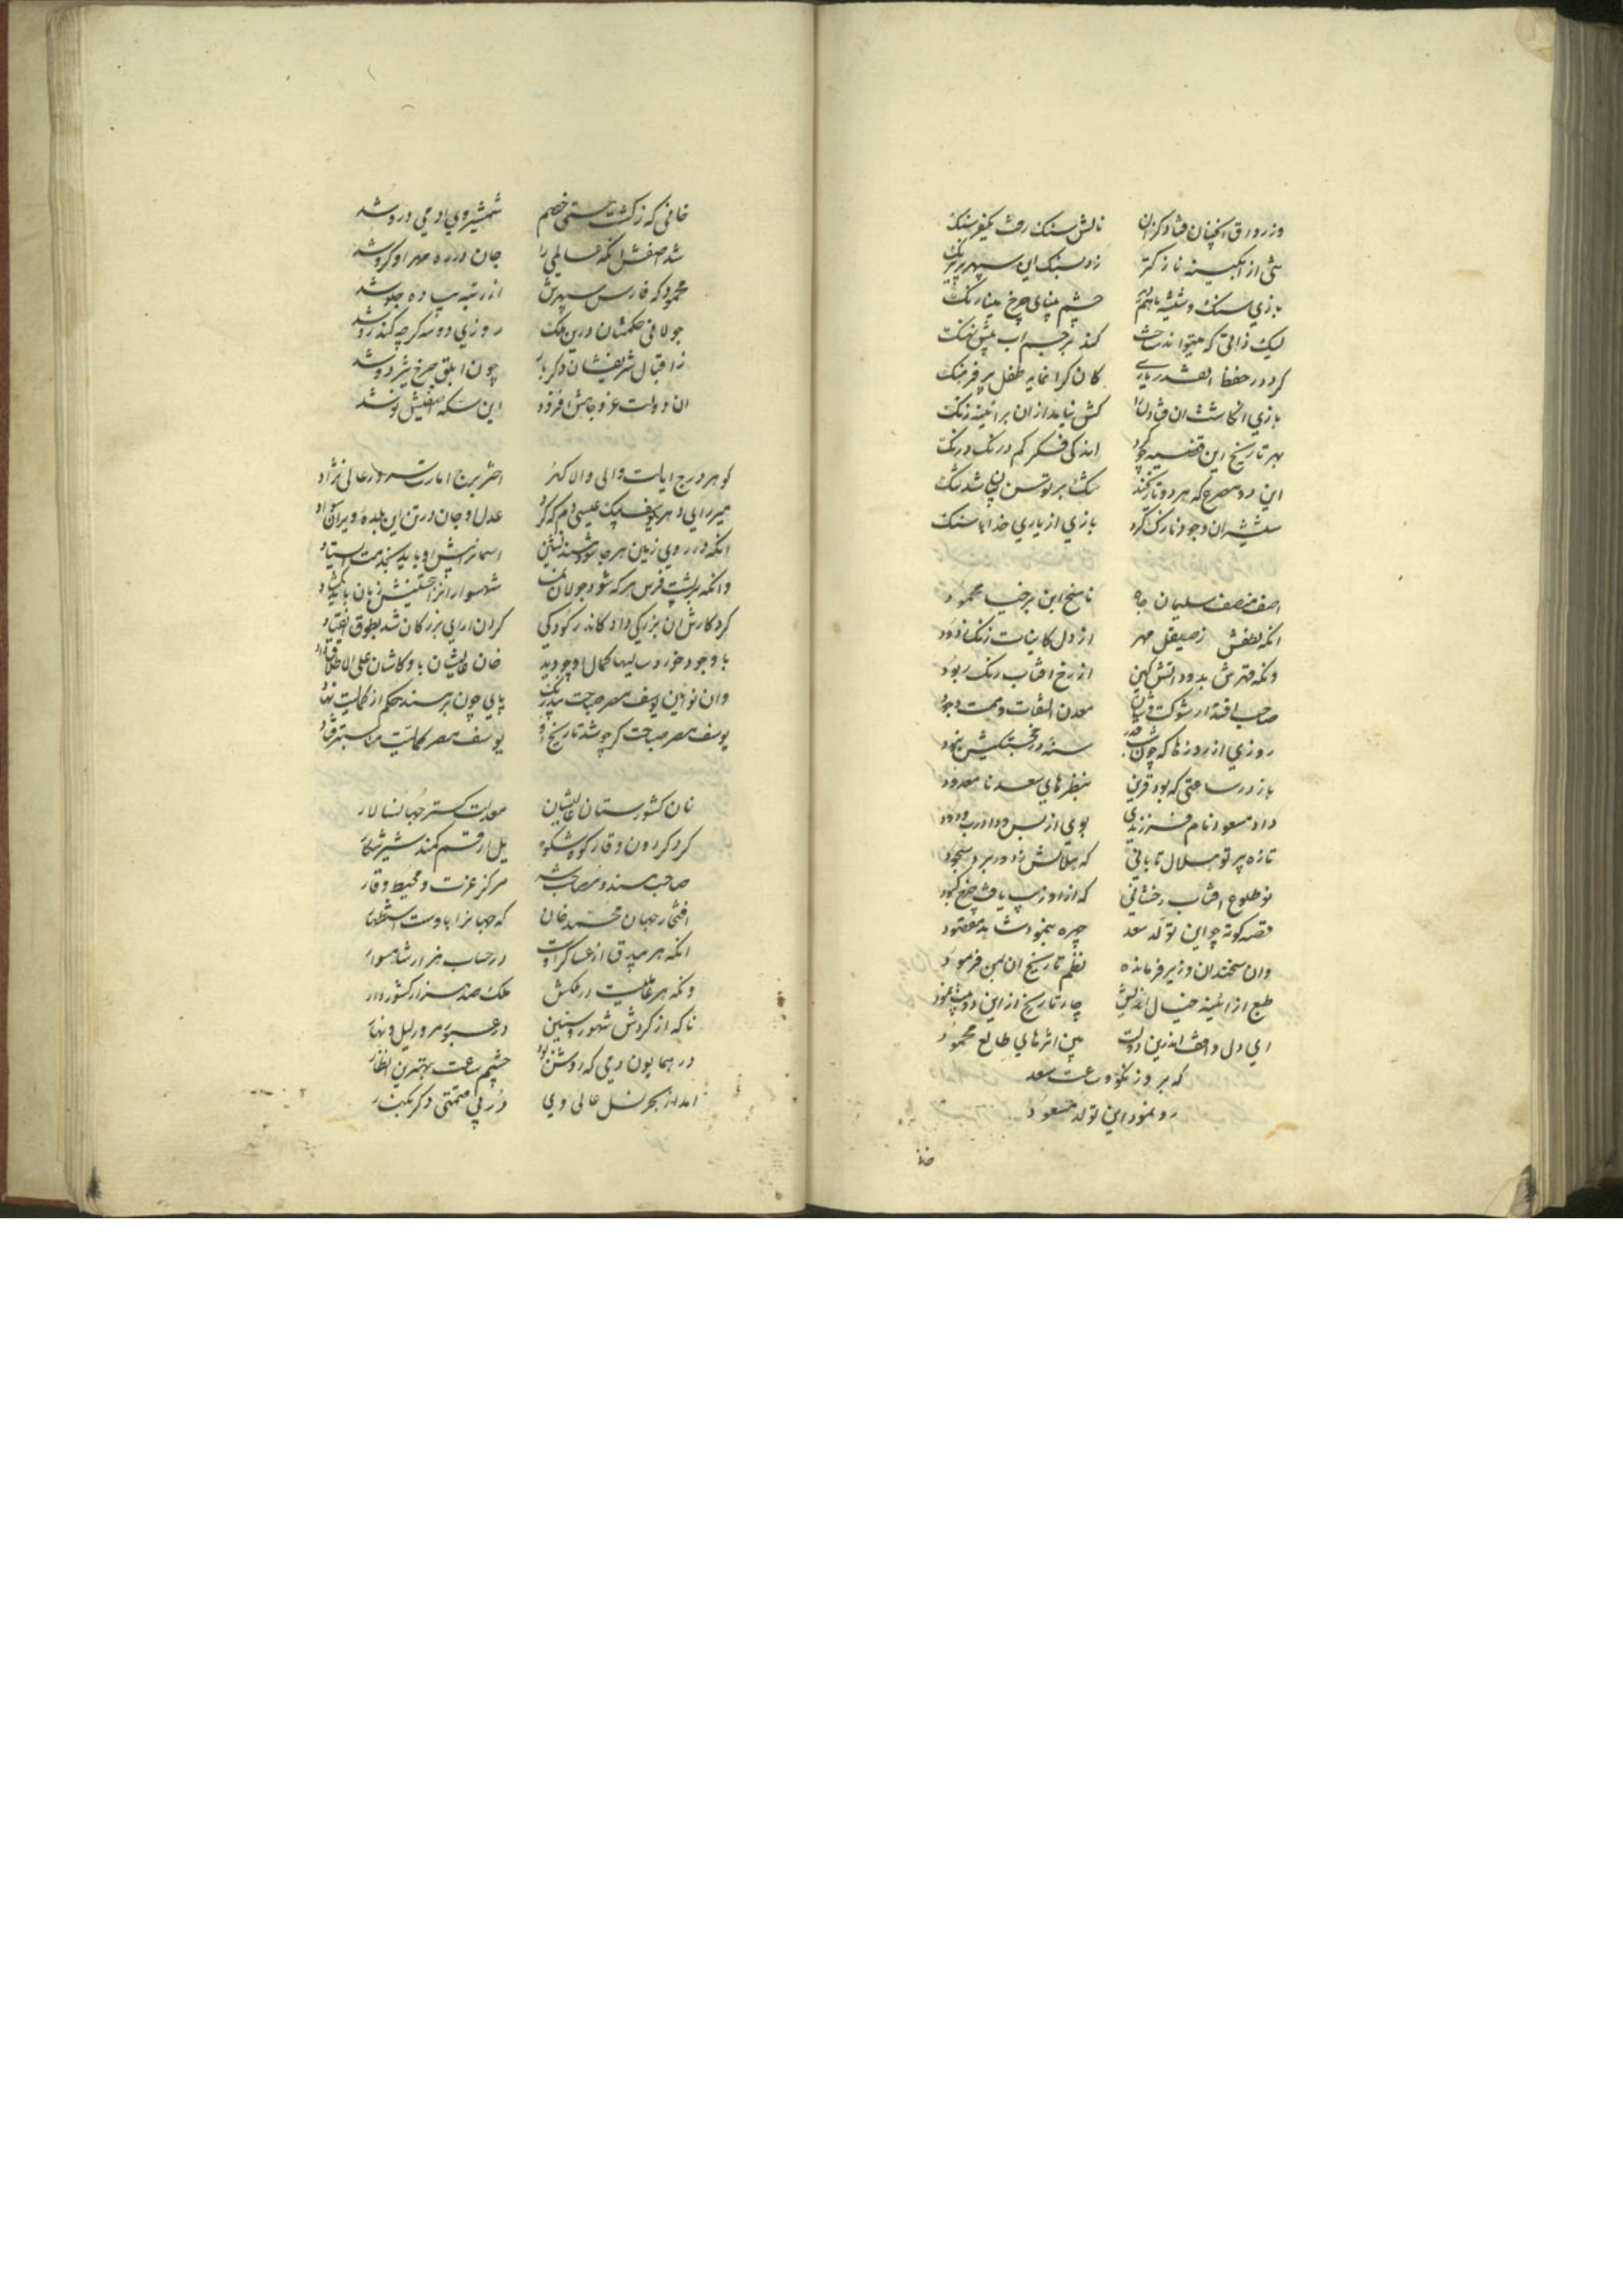 وز رواق انچنان فتاد کزان نالش سنک رفت یکفرسنک
شی از ابکینه نازکتر زد بسنک این سپهر پر
بازی سنک و شیشه باهم چشم مینای چرخ مینا رنک
لیک ذاتی که میتواند ساخت کند بر جسم اب پیش نهنک
کرد در حفظ انقدر یاری کان کرانمایه طفل پر فرهنک
بازی انکاشت ان کش نیاید ازان بر ائینه زنک
بهر تاریخ این قضیه چو کرد اندکی فکر کم درنک درنک
این دو مصرع که هر دو تاریخند بیشک ابر توسن شد تنک
شیشه ان وجود نازک کرد بازی از یاری خدا با سنک
اصف منصف سلیمان جاه ناسخ ابن برخیا محمود
انکه لطفش ز صیقل مهر از دل کاینات زنک زدود
ونکه قهرش بدود اتش کین از رخ افتاب رنک ربود
صاحب اقتدار شوکت و شان معدن التفات و همت و جود
روزی از روزها که چون شب قدر در خجستکیش نبود
باز در ساعتی که بود قرین بنظرهای سعد نا معدود
داد مسعود نام فرزندی بوی از بس ودادرب ودود
تازه پرتو هلال تابانی که هلالش ز دور برد سجود
نو طلوع افتاب رخشانی که ازو زیب یافت چرخ کبود
قصه کوته چو این تولد سعد چهره بنمود شاهد مقصود
وان سخندان وزیر فرمانده نظم تاریخ ان بمن فرمود
طبع از ائینه خیال اندیش چار تاریخ از این دو بیت نمود
ای دل واقف اندرین دولت بین اثرهای طالع محمود
که بروز نکو و ساعت سعد
رو نمود این تولد مسعود
خانی که ز کشت هستی خصم شمشیر وی ادمی درو شد
شد اصفش انکه عالمی را جان در ره مهر او کرو شد
محمود که فارس سپهرش از رتبه پیاده جلو شد
جولانی حکمشان درین ملک روزی دو سه کرچه کند رو شد
ز اقبال شریفشان دکر بار چون ابلق چرخ تیز دو شد
ان دولت عز و جاهش افزود این سکه اصفیش نو شد
کوهر درج ایالت والی والا کهر اختر برج امارت سرور عالی نژاد
میر رای دهر یوسف بیک عیسی دم که کرد عدل او جان در تن این بلده ویران
انکه در روی زمین هر جا شود مسند نشین اسمان پیش او باید بخدمت ایستاد
وانکه بر پشت فرس هرکه شود جولان شهسواران را زبان باید کشاد
کرد کارش ان بزرکی داد کاندر کودکی کردن ارای بزرکان شد بطوق انقیاد
با وجود خورد سالیها کمال او چو دید خان عالیشان باو کاشان علی الاطلاق داد
وان نو ائین یوسف مصر صباحت بیدرنک پای چون بر مسند حکم از کمالیت نهاد
یوسف مصر صباحت کر چو شد تاریخ او یوسف مصر کمالیت
خان کشورستان عالیشان معدلت کستر جهان سالار
کرد کردون وقار کوه شکوه یل ارقم کمند شیر شکار
صاحب مسند و مصاحب شه مرکز عزت و محیط وقار
افتخار جهان محمد خان که جهانرا باوست استظهار
انکه هر بیدق از عساکر اوست در حساب هزار شاهسوار
ونکه هر در ملکش ملک صد هزار کشور دار
تا که از کردش شهور و سنین در عبور و مرور لیل و نهار
در همایون دمی که روشن بود چشم ساعت ببهترین انظار
امد از بحر نسل عالی وی در بی قیمتی دکر بکنار